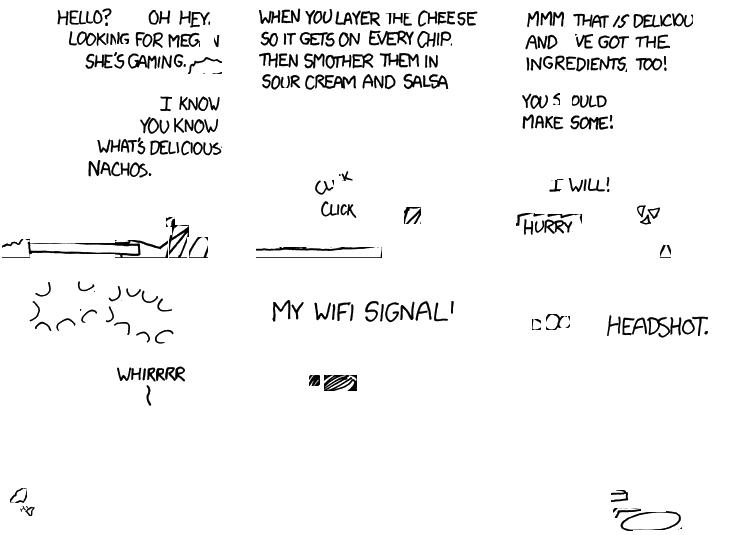 HELLO? OH HEY.
LOOKING FOR MEG
SHE'S GAMING.
I KNOW
YOU KNOW
WHAT'S DELICIOUS
NACHOS.
WHEN YOU LAYER THE CHEESE
SO IT GETS ON EVERY CHIP.
THEN SMOTHER THEM IN
SOUR CREAM AND SALSA
CLICK
MMM THAT IS DELICIOU
AND 'VE GOT THE
INGREDIENTS, TOO!
YOU S OULD
MAKE SOME!
I WILL!
HURRY
WHIRRRR
MY WIFI SIGNAL!
HEADSHOT.